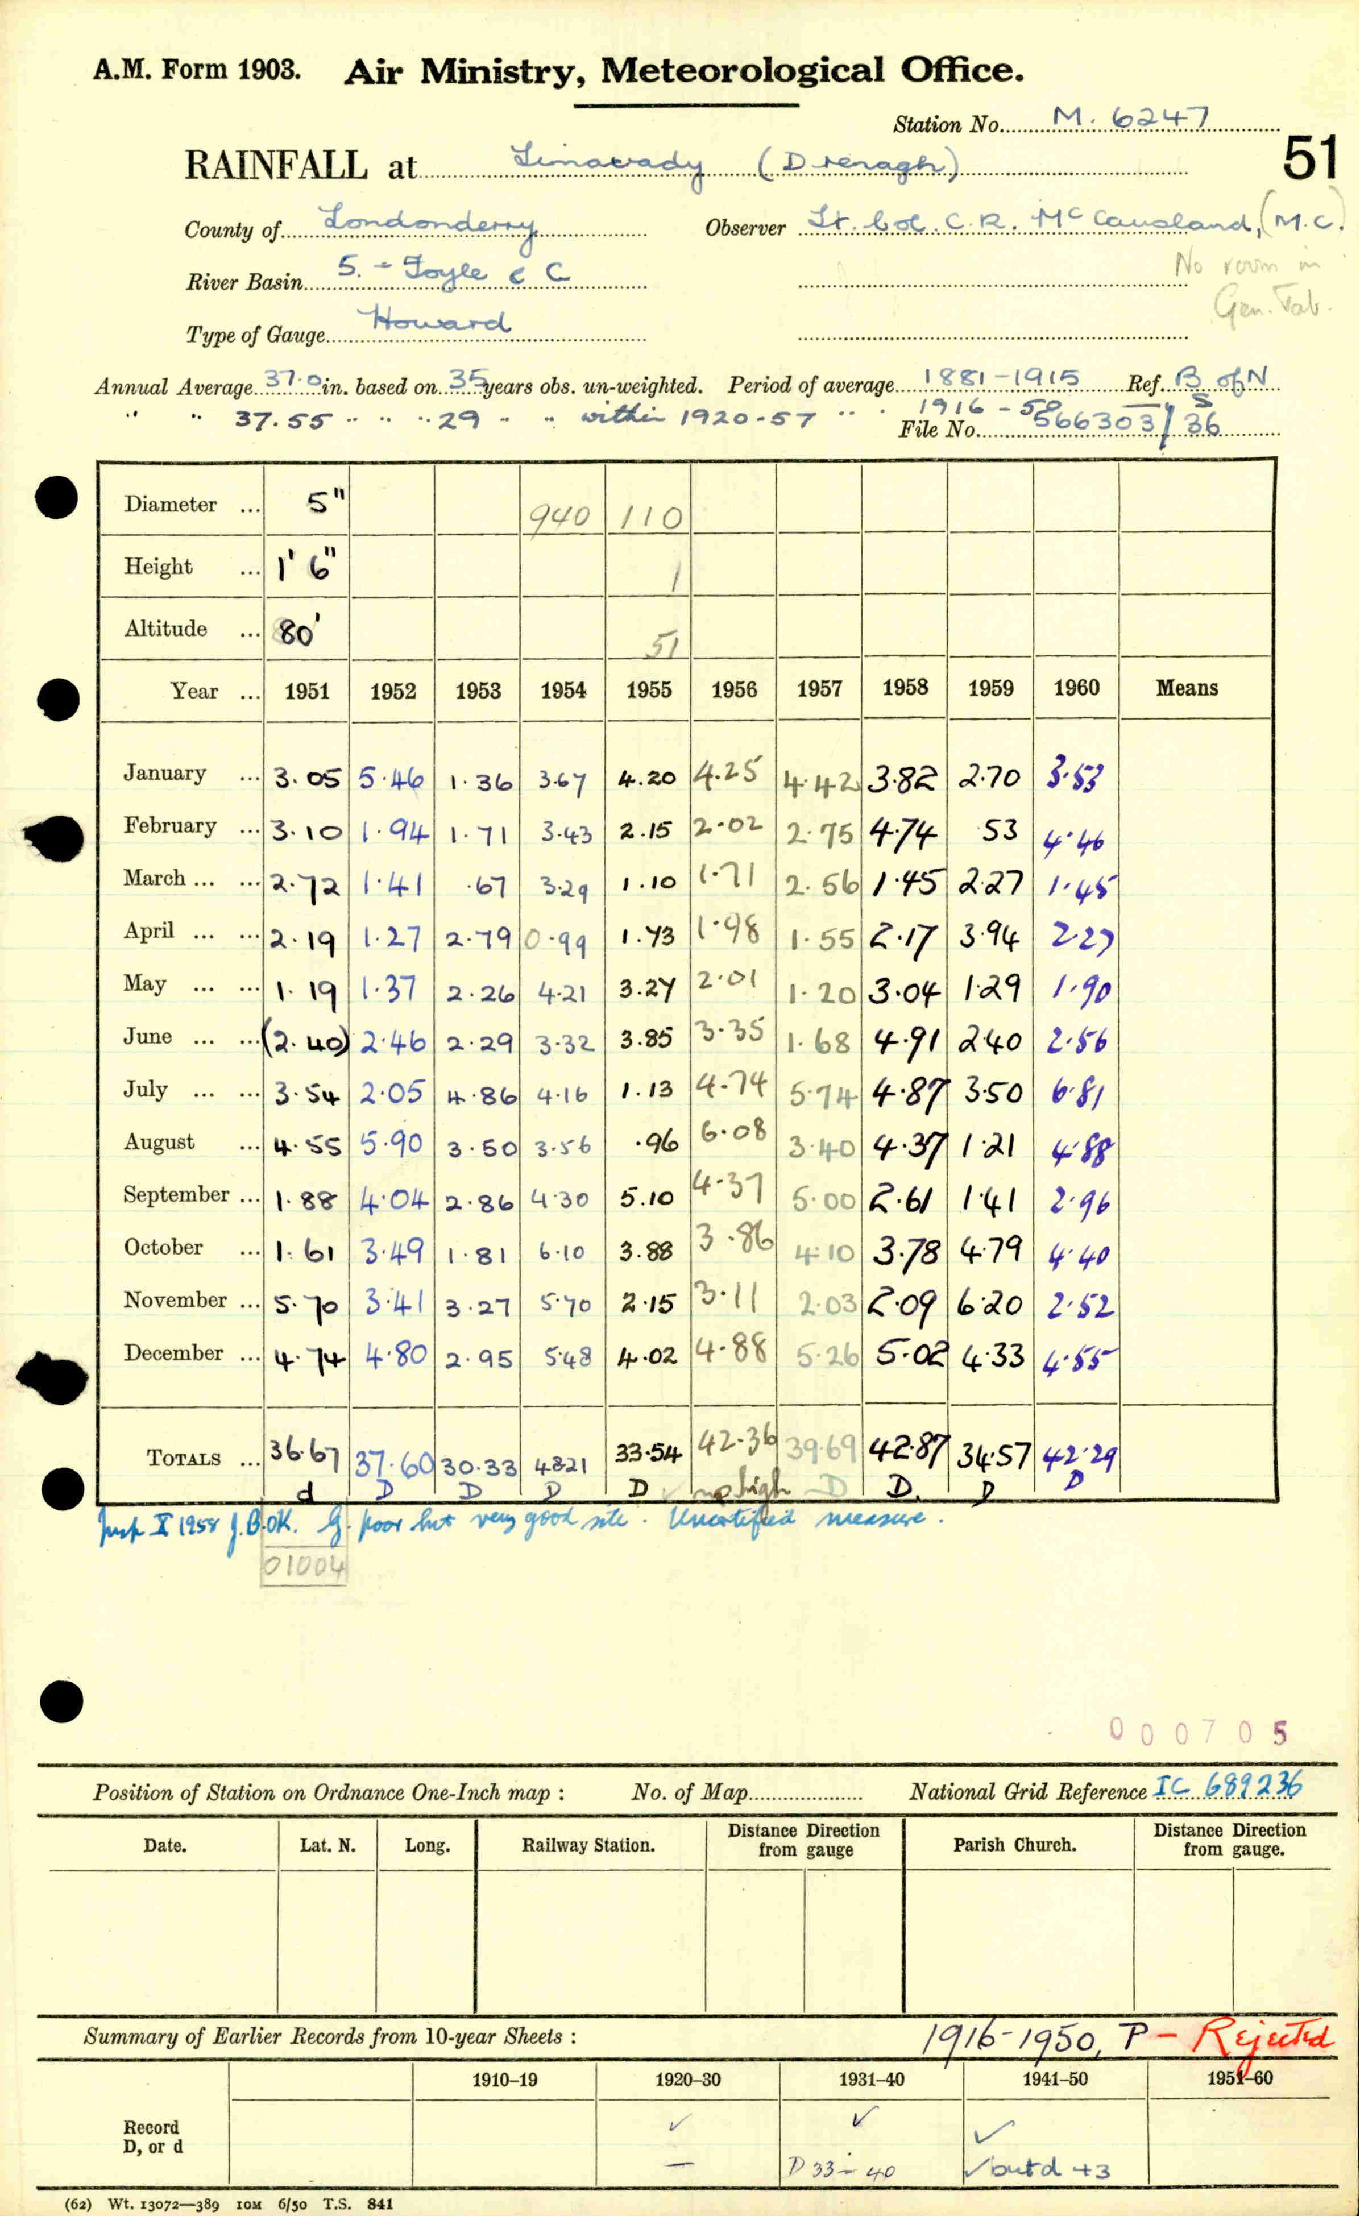 A.M. Form 1903. Air Ministry, Meteorological Office.
Station No. M. 6247
51
RAINFALL at Limavady (Drenagh)
County of Londonderry Observer Lt. Col. C.R. McCausland, (M.C.)
River Basin 5. - Foyle & C No room in
Type of Gauge Howard Gen. Tab.
Annual Average 37.0 in. based on 35 years obs. un-weighted. Period of average 1881-1915 Ref. B of N
" " 37.55 " " " 29 " " within 1920-57 " " 1916-50 S
File No. 566303/36
Diameter ... 5" 940 110
Height ... 1' 6" 1
Altitude ... 80' 51
Year ... 1951 1952 1953 1954 1955 1956 1957 1958 1959 1960 Means
January ... 3.05 5.46 1.36 3.67 4.20 4.25 4.42 3.82 2.70 3.53
February ... 3.10 1.94 1.71 3.43 2.15 2.02 2.75 4.74 53 4.46
March ... ... 2.72 1.41 .67 3.29 1.10 1.71 2.56 1.45 2.27 1.45
April ... ... 2.19 1.27 2.79 0.99 1.73 1.98 1.55 2.17 3.94 2.27
May ... ... 1.19 1.37 2.26 4.21 3.27 2.01 1.20 3.04 1.29 1.90
June ... ... (2.40) 2.46 2.29 3.32 3.85 3.35 1.68 4.91 2.40 2.56
July ... ... 3.54 2.05 4.86 4.16 1.13 4.74 5.74 4.87 3.50 6.81
August ... 4.55 5.90 3.50 3.56 .96 6.08 3.40 4.37 1.21 4.88
September ... 1.88 4.04 2.86 4.30 5.10 4.37 5.00 2.61 1.41 2.96
October ... 1.61 3.49 1.81 6.10 3.88 3.86 4.10 3.78 4.79 4.40
November ... 5.70 3.41 3.27 5.70 2.15 3.11 2.03 2.09 6.20 2.52
December ... 4.74 4.80 2.95 5.48 4.02 4.88 5.26 5.02 4.33 4.55
TOTALS ... 36.67 37.60 30.33 48.21 33.54 42.36 39.69 42.87 34.57 42.29
d D D D D high D D. D D
Insp X 1958 J.B. OK. G. poor but very good site. Uncertified measure.
01004
000705
Position of Station on Ordnance One-Inch map : No. of Map National Grid Reference IC 689236
Date. Lat. N. Long. Railway Station. Distance from Direction gauge Parish Church. Distance from Direction gauge.
Summary of Earlier Records from 10-year Sheets : 1916-1950, P - Rejected
1910-19 1920-30 1931-40 1941-50 1951-60
Record ✓ ✓ ✓
D, or d — D 33-40 ✓ but d 43
(62) Wt. 13072—389 10M 6/50 T.S. 841